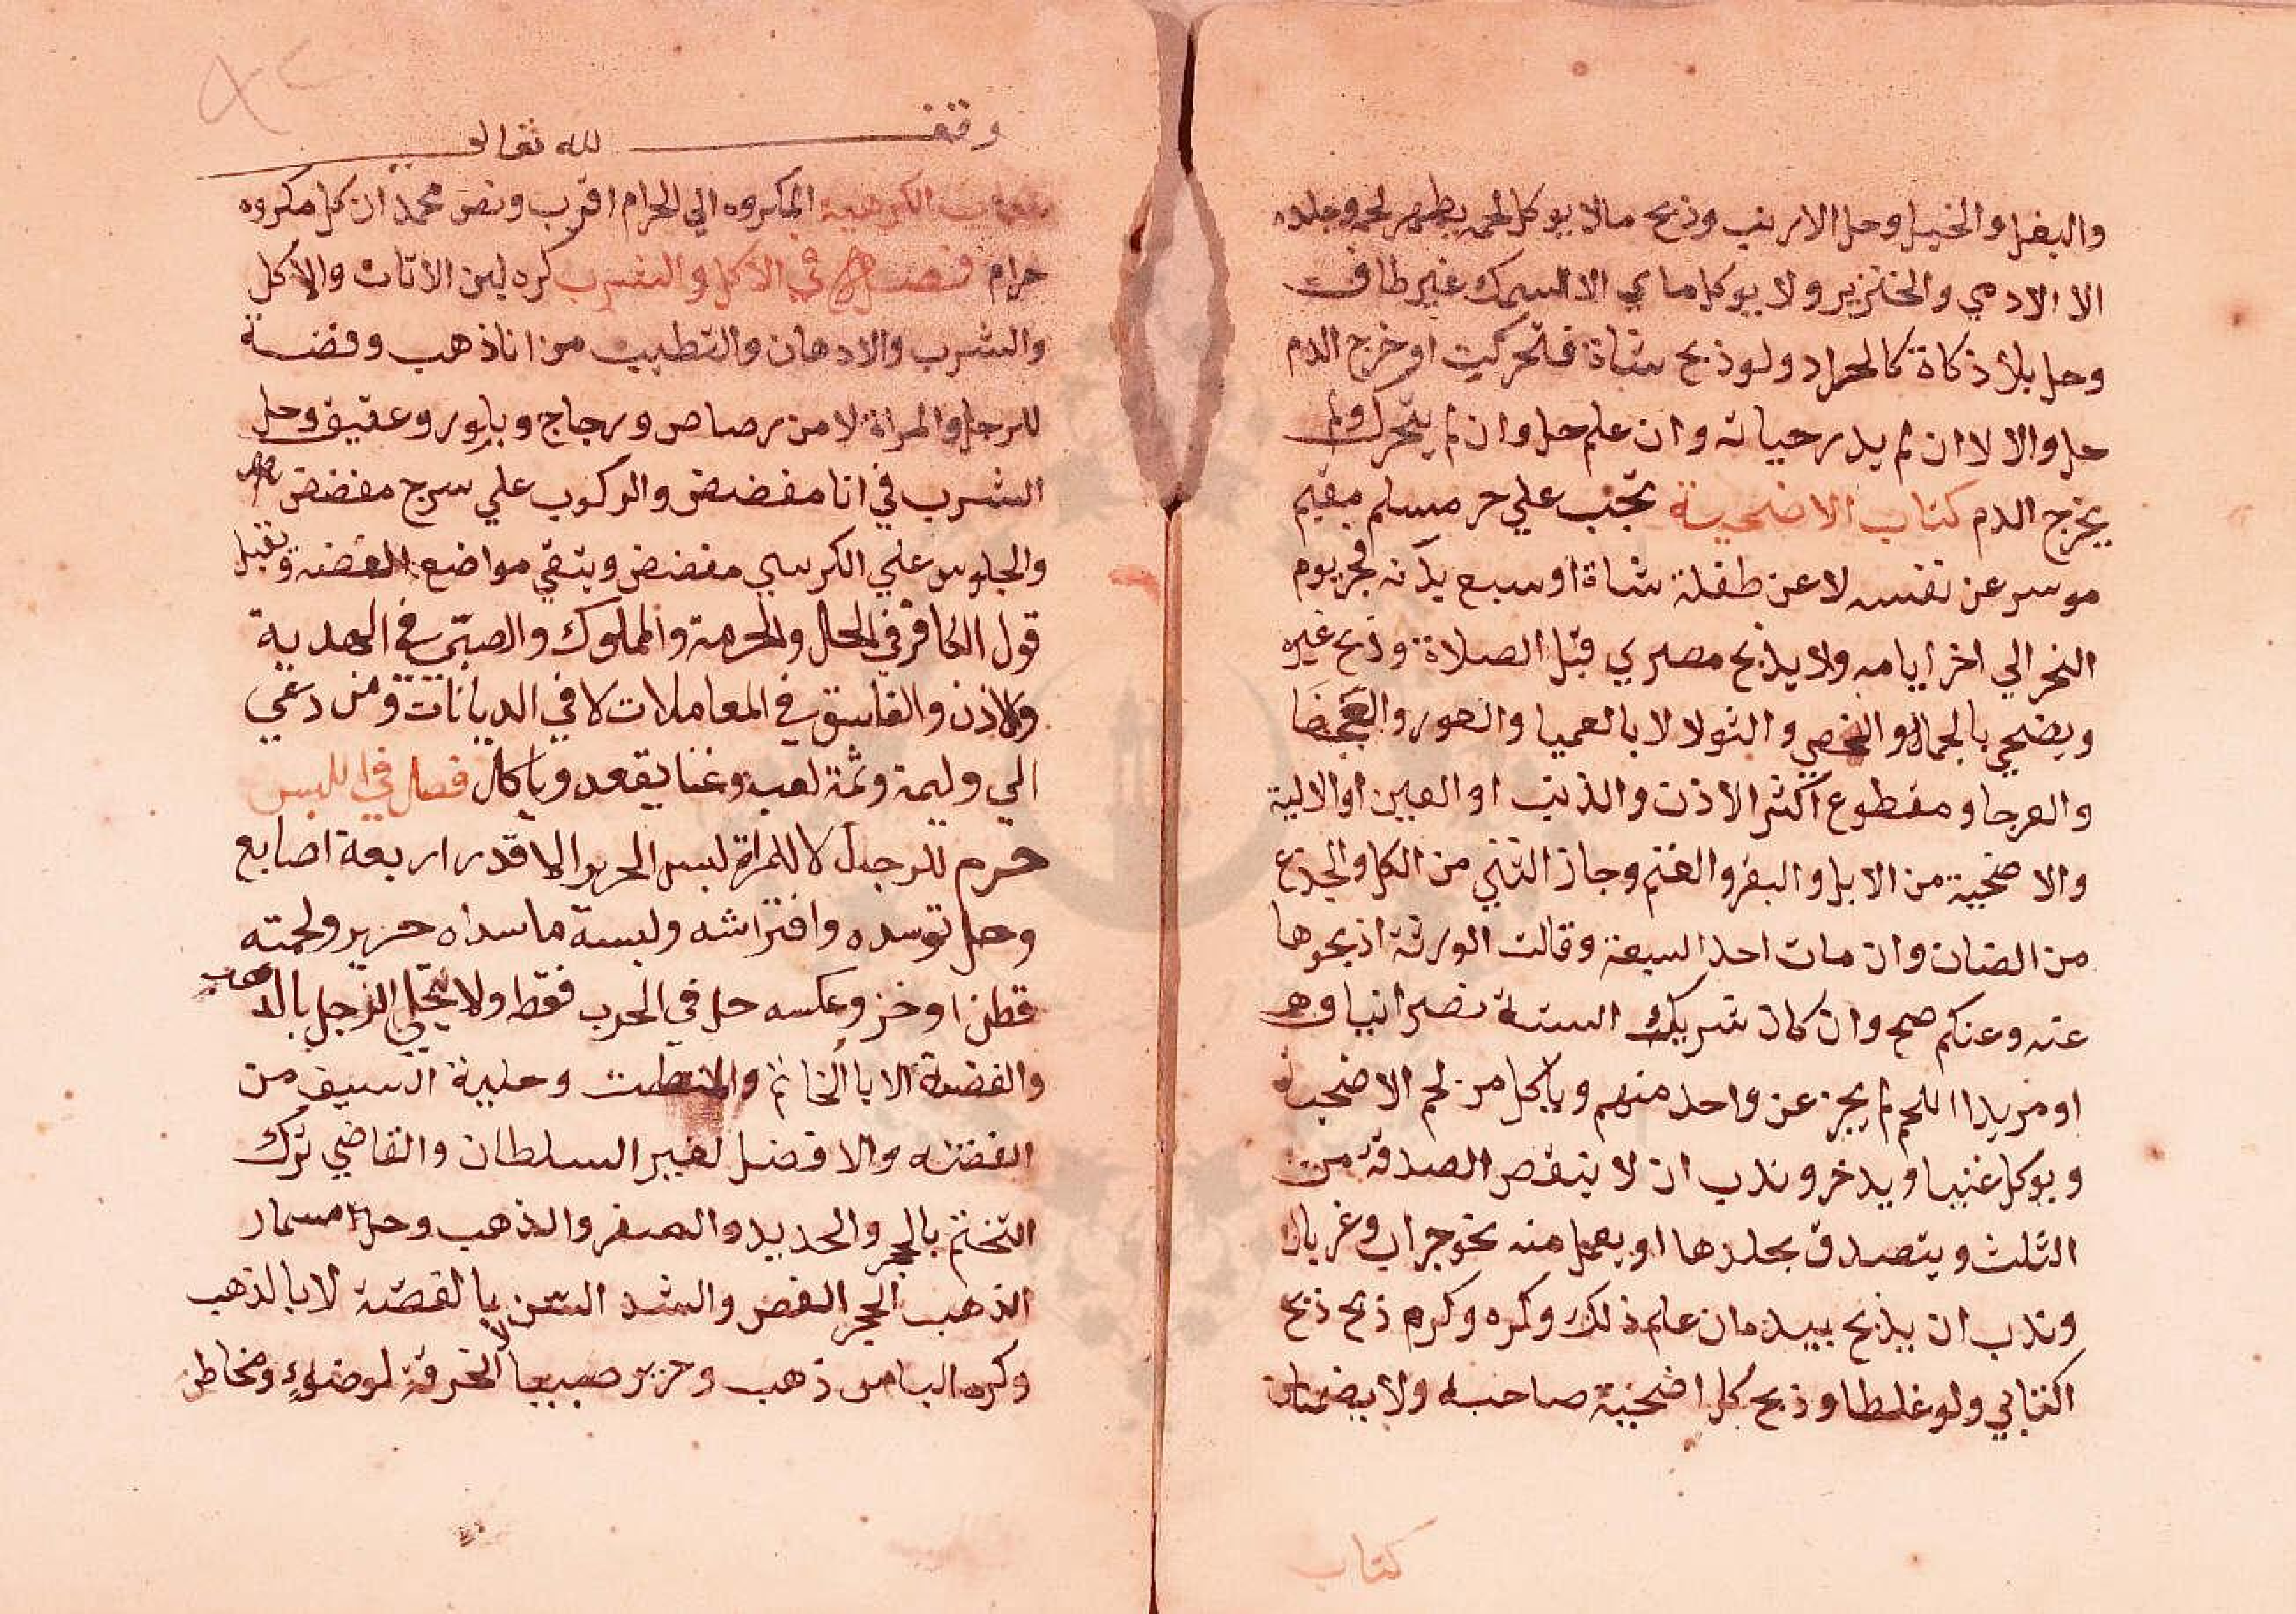 والبغل والخيل وحل الارنب وذبح مالا يوكل لحمه يطهر لحمه وجلده
الا الادمي والخنزير ولا يوكل ماي الا السمك غير طاف
وحل بلا ذكاة كالجراد ولو ذبح شاة فتحركت او خرج الدم
حل والا لا ان لم يدر حياته وان علم حل وان لم يتحرك ولم
يخرج الدم كتاب الاضحية تجب علي حر مسلم مقيم
موسر عن نفسه لا عن طفلة شاة او سبع بدنه فجر يوم
النحر الي اخر ايامه ولا يذبح مصري قبل الصلاة وذبح غيره
ويضحي بالجما والخصي والثولا لا بالعميا والعور والعجفا
والعرجا ومقطوع اكثر الاذن والذنب او العين او الالية
والاضحية من الابل والبقر والغنم وجاز الثني من الكل والجذع
من الضان وان مات احد السبعة وقالت الورثة اذبحوها
عنه وعنكم صح وان كان شريك الستة نصرانيا وهو
او مريدا اللحم لم يجز عن واحد منهم وياكل من لحم الاضحية
ويوكل غنيا ويدخر وندب ان لا ينقص الصدقة من
الثلث ويتصدق بجلدها او يعمل منه نحو جراب وغربال
وندب ان يذبح بيده ان علم ذلك وكره وكره ذبح ذبح
الكتابي ولو غلطا وذبح كل اضحية صاحبه ولا يضمنان
كتاب
وقف لله تعالى
كتاب الكرهية المكروه الي الحرام اقرب ونص محمد ان كل مكروه
حرام فصل في الاكل والشرب كره لبن الاتان والاكل
والشرب والادهان والتطييب من انا ذهب وفضة
للرجل والمراة لا من رصاص وزجاج وبلور وعقيق وحل
الشرب في انا مفضض والركوب علي سرج مفضض
والجلوس علي الكرسي مفضض ويتقي مواضع الفضه وتقبل
قول الكافر في الحل والحرمة والمملوك والصبي في الهدية
والاذن والفاسق في المعاملات لا في الديانات ومن دعي
الي وليمة وثمة لعب وغنا يقعد وياكل فصل في اللبس
حرم للرجل لا للمراة لبس الحرير الا قدر اربعة اصابع
وحل توسده وافتراشه ولبسة ما سداه حرير ولحمته
قطن او خز وعكسه حل في الحرب فقط ولا يتحلي الرجل بالذهب
والفضة الا بالخاتم والمنطقة وحلية السيف من
الفضه والافضل لغير السلطان والقاضي ترك
التختم بالحجر والحديد والصفر والذهب وحل مسمار
الذهب الحجر الفص والشد السن بالفضة لا بالذهب
وكره الباس ذهب وحرير صبيا لا الخرقة لوضوء ومخاط